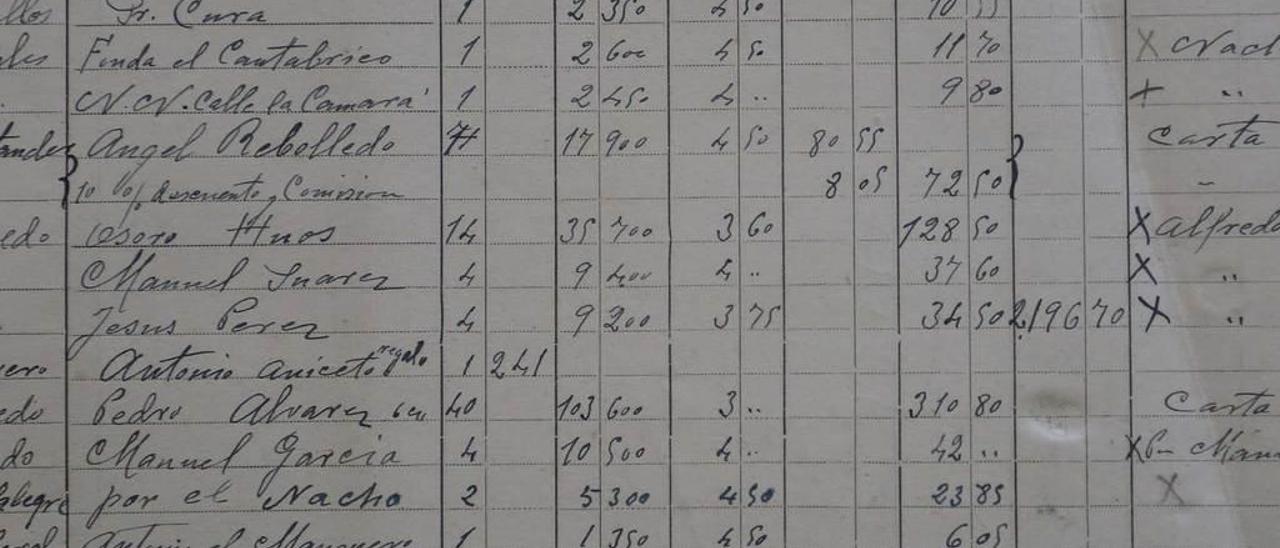 llos Sr. Cura 1 2 350 4 50 10 55
ales Fonda el Cantabrico 1 2 600 4 50 11 70 X Nach
N.N. Calle la Camara 1 2 450 4 .. 9 80 + "
tander Angel Rebolledo 7 17 900 4 50 80 55 Carta
10 % descuento y Comision 8 05 72 50 "
edo Osoro Hnos 14 35 700 3 60 128 50 X Alfredo
Manuel Suarez 4 9 400 4 .. 37 60 X "
Jesus Perez 4 9 200 3 75 34 50 2,196 70 X "
ero Antonio Aniceto regalo 1 241
edo Pedro Alvarez 40 103 600 3 .. 310 80 Carta
do Manuel Garcia 4 10 500 4 .. 42 .. X Man
alegre por el Nacho 2 5 300 4 50 23 85 X
1 1 350 4 50 6 05